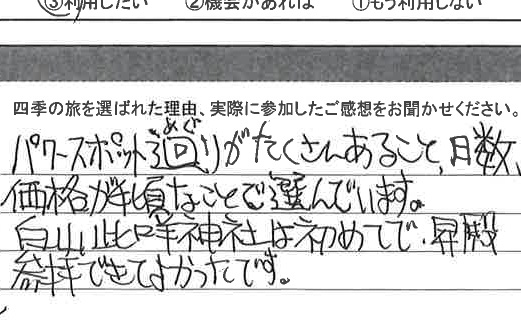 ③利用したい ②機会があれば ①もう利用しない
四季の旅を選ばれた理由、実際に参加したご感想をお聞かせください。
めぐ
パワースポット廻りがたくさんあること、日数、
価格が手頃なことで選んでいます。
白山比咩神社は初めてで、昇殿
参拝できてよかったです。